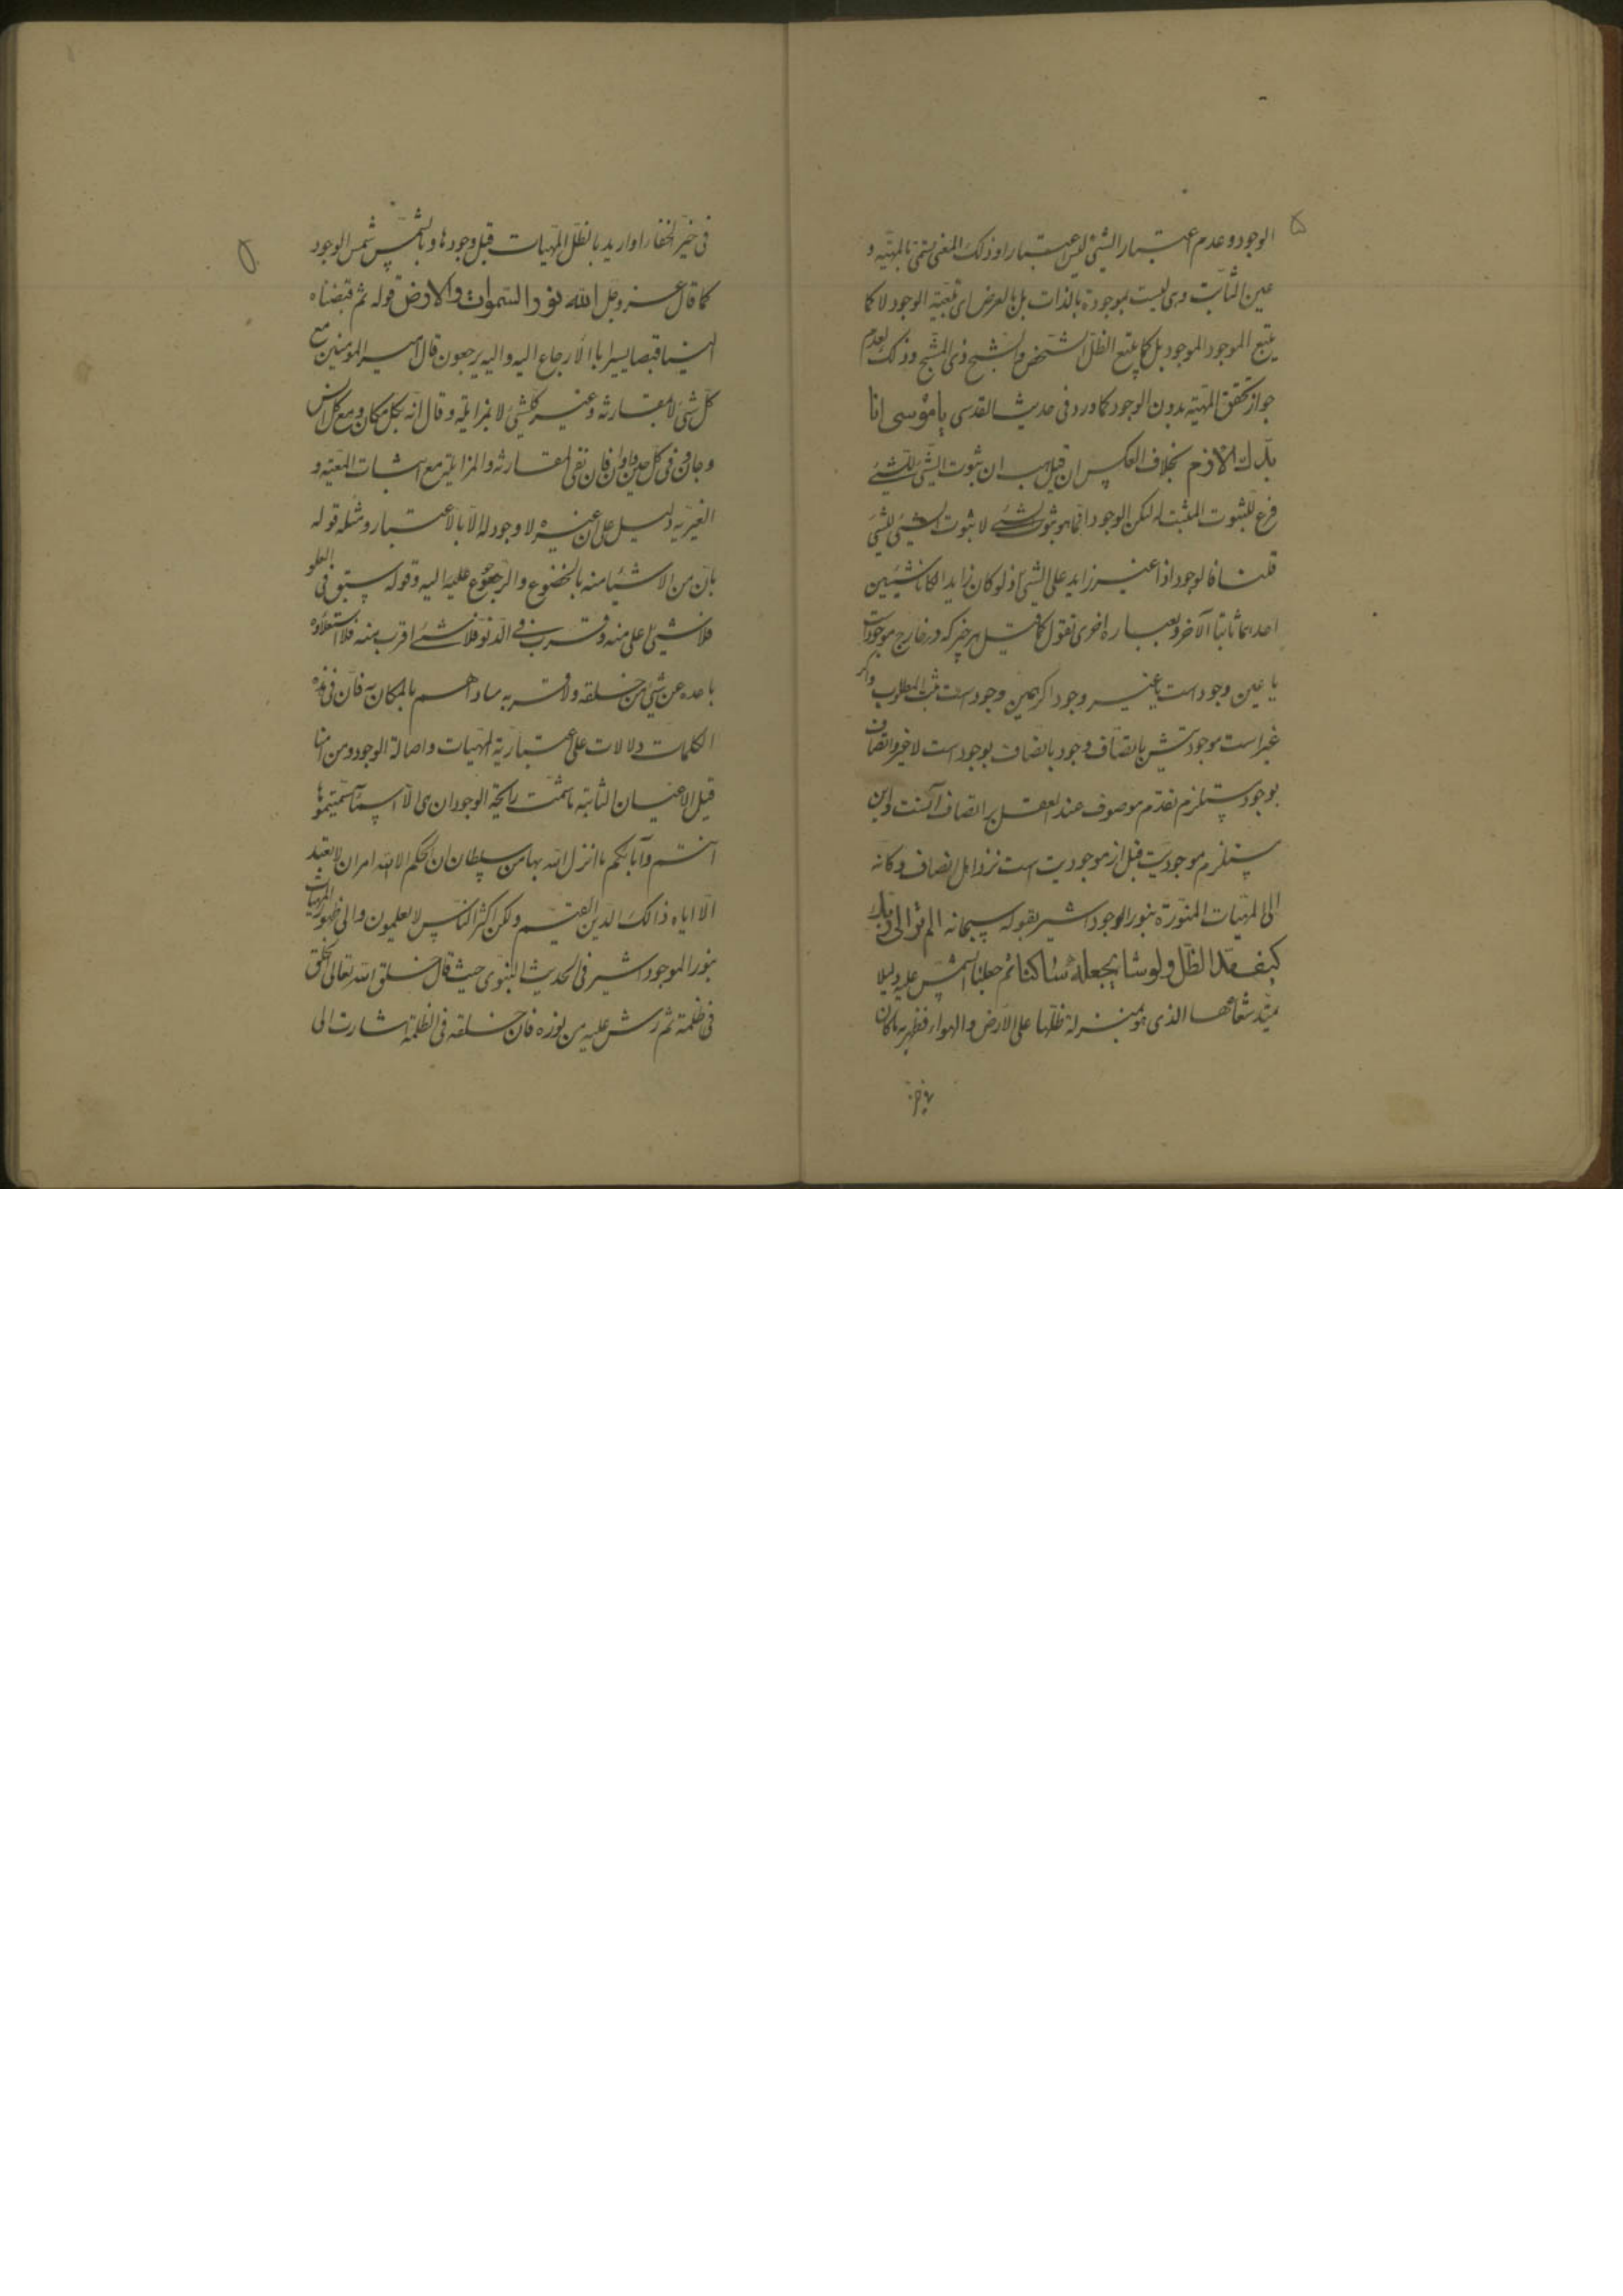 ۵
الوجود و عدم اعتبار الشئ ليس اعتبارا و ذلك المعنى يسمى بالمهيّة و
عين الثابت و هى ليست بموجودة بالذات بل بالعرض اى بتبعيّة الوجود لا كما
يتبع الموجود الموجود بل كما يتبع الظلّ الشخص و الشبح ذى الشبح و ذلك لعدم
جواز تحقق المهيّه بدون الوجود كما ورد فى حديث القدسى يا موسى انا
بدّك اللازم بخلاف العكس ان قيل ان ثبوت الشئ للشئ
فرع لثبوت المثبت له لكن الوجود انما هو ثبوت الشئ لا ثبوت الشئ للشئ
قلنا فالوجود اذا غير زايد على الشئ اذ لو كان زايدا لكانا شيئين
احدهما ثابتا الآخر و بعباره اخرى نقول كما قيل هر چيز كه در خارج موجود است
يا عين وجود است يا غير وجود اكر عين وجود است ثبت المطلوب و اكر
غير است موجوديتش باتصاف وجود باتصاف بوجود است لا غير و اتصاف
بوجود مستلزم تقدّم موصوف عند العقل بر اتصاف آنست و اين
مستلزم موجوديت قبل از موجوديت است نزد اهل انصاف و كانه
الى المهيّات المنوّرة بنور الوجود اشير بقوله سبحانه الم تر الى ربك
كيف مدّ الظلّ و لو شا لجعله ساكنا ثم جعلنا الشمس عليه دليلا
يمتد شعاعها الذى هو بمنزلة ظلها على الارض و الهواء فظهر به ما كان
فى حيّز الخفا او اريد بالظلّ المهيّات قبل وجودها و بالشمس شمس الوجود
كما قال عز و جل الله نور السموات و الارض قوله ثم قبضناه
الينا قبضا يسيرا بالارجاع اليه و اليه يرجعون قال امير المؤمنين مع
كلّ شئ لا بمقارنه و غير كلشئ لا بمزايله و قال انّه بكل مكان و مع كل انس
و جان و فى كل حين و اوان فان نفى المقارنه و المزايله مع اثبات المعيّه و
الغيريّه دليل على ان غيره لا وجود له الا بالاعتبار و مثله قوله
بان من الاشيا منه بالخضوع و الرجوع عليه اليه و قوله سبق فى العلو
فلا شئ اعلى منه و قرب فى الدنوّ فلا شئ اقرب منه فلا استعلاؤه
باعده عن شئ من خلقه و لا قربه ساواهم بالمكان به فان فى هذه
الكلمات دلالات على اعتباريّة المهيّات و اصالة الوجود و من هنا
قيل الاعيان الثابته ما شمّت رايحة الوجود ان هى الا اسمآ سميتموها
انتم و آباؤكم ما انزل الله بها من سلطان ان الحكم الا لله امر ان لا تعبد
الّا اياه ذالك الدين القيّم و لكن اكثر الناس لا يعلمون و الى ظهور المهيات
بنور الموجود اشير فى الحديث النبوى حيث قال خلق الله تعالى الخلق
فى ظلمة ثم رش عليه من نوره فان خلقه فى الظلمة اشارت الى